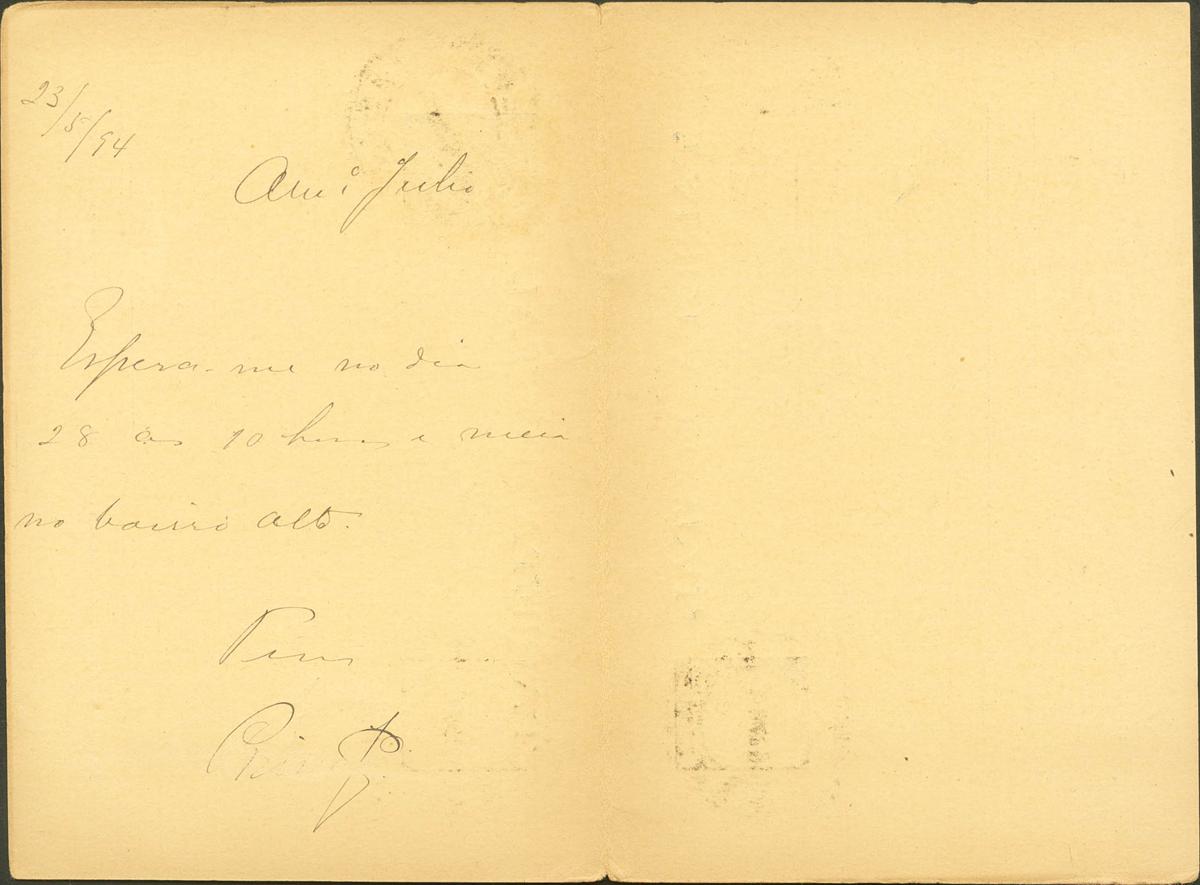 23/5/94
Am.º Julio
Espera-me no dia
28 as 10 horas e meia
no bairro alto.